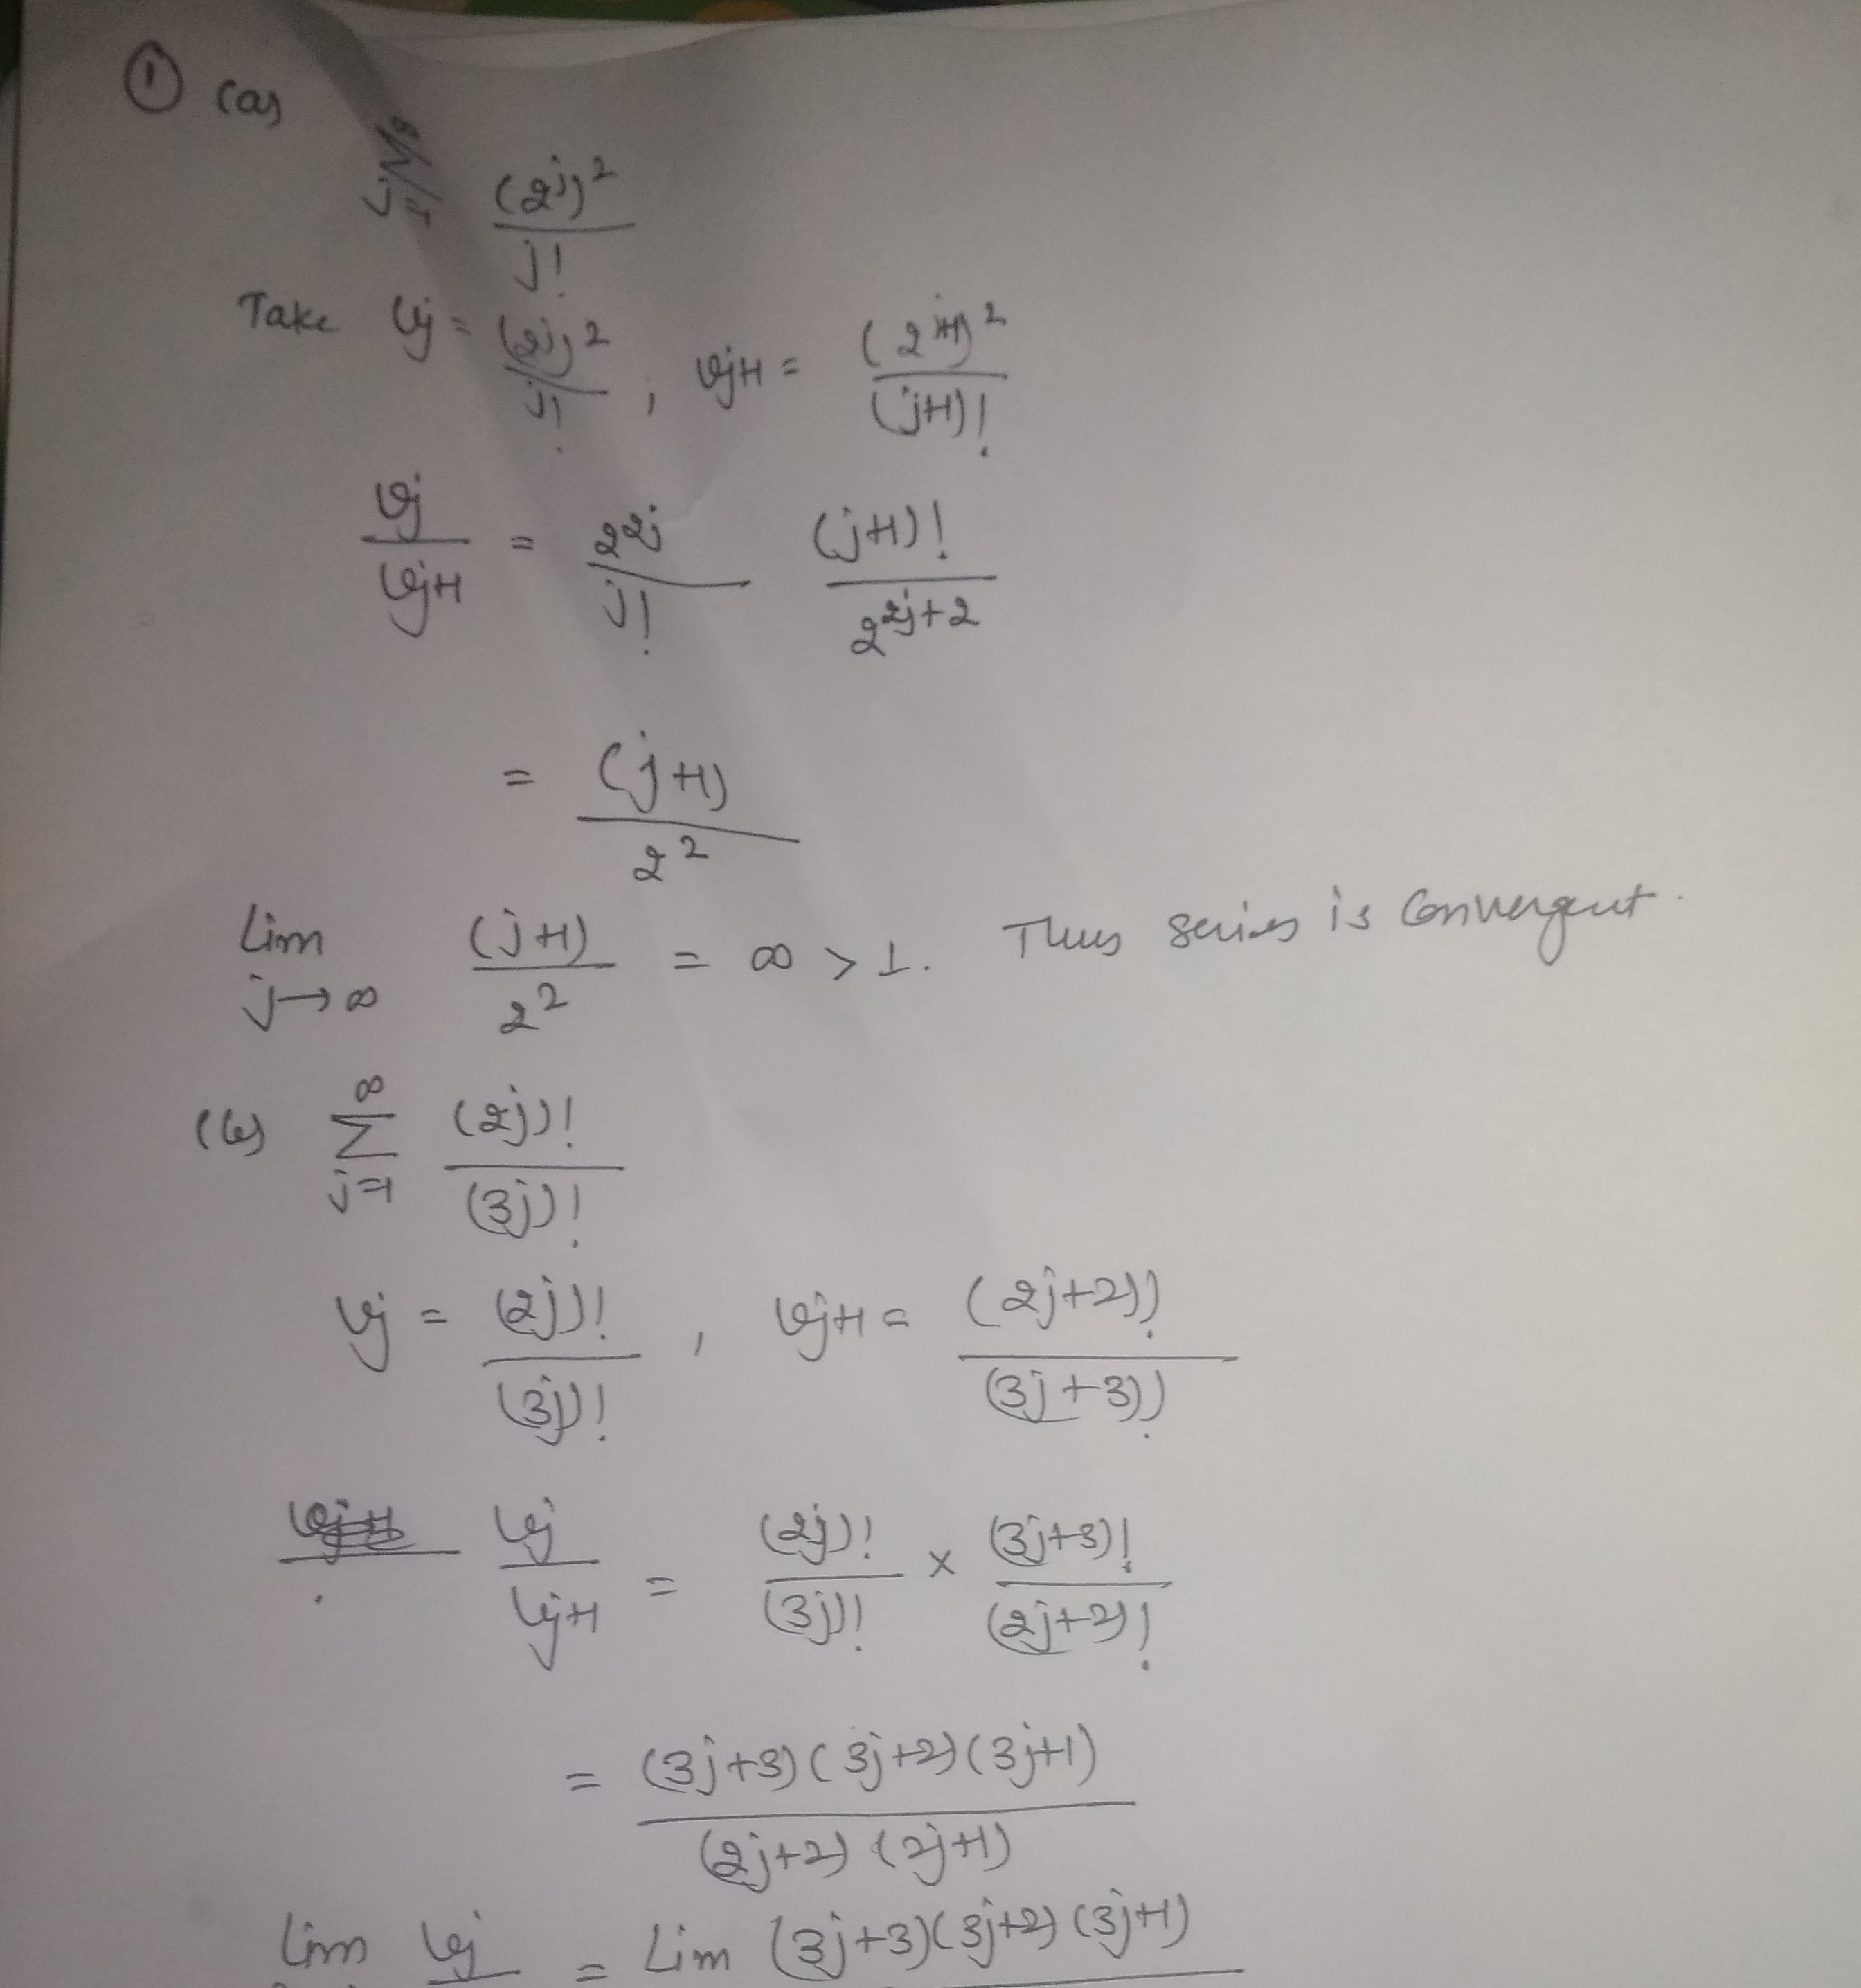 ① (a)
∞ Σ j=1 (2^j)^2 / j!
Take Uj = (2^j)^2 / j! , Uj+1 = (2^{j+1})^2 / (j+1)!
Uj / Uj+1 = 2^{2j} / j! (j+1)! / 2^{2j+2}
= (j+1) / 2^2
Lim j→∞ (j+1) / 2^2 = ∞ > 1. Thus series is Convergent.
(b) ∞ Σ j=1 (2j)! / (3j)!
Uj = (2j)! / (3j)! , Uj+1 = (2j+2)! / (3j+3)!
Uj / Uj+1 = (2j)! / (3j)! × (3j+3)! / (2j+2)!
= (3j+3)(3j+2)(3j+1) / (2j+2)(2j+1)
Lim Uj = Lim (3j+3)(3j+2)(3j+1)